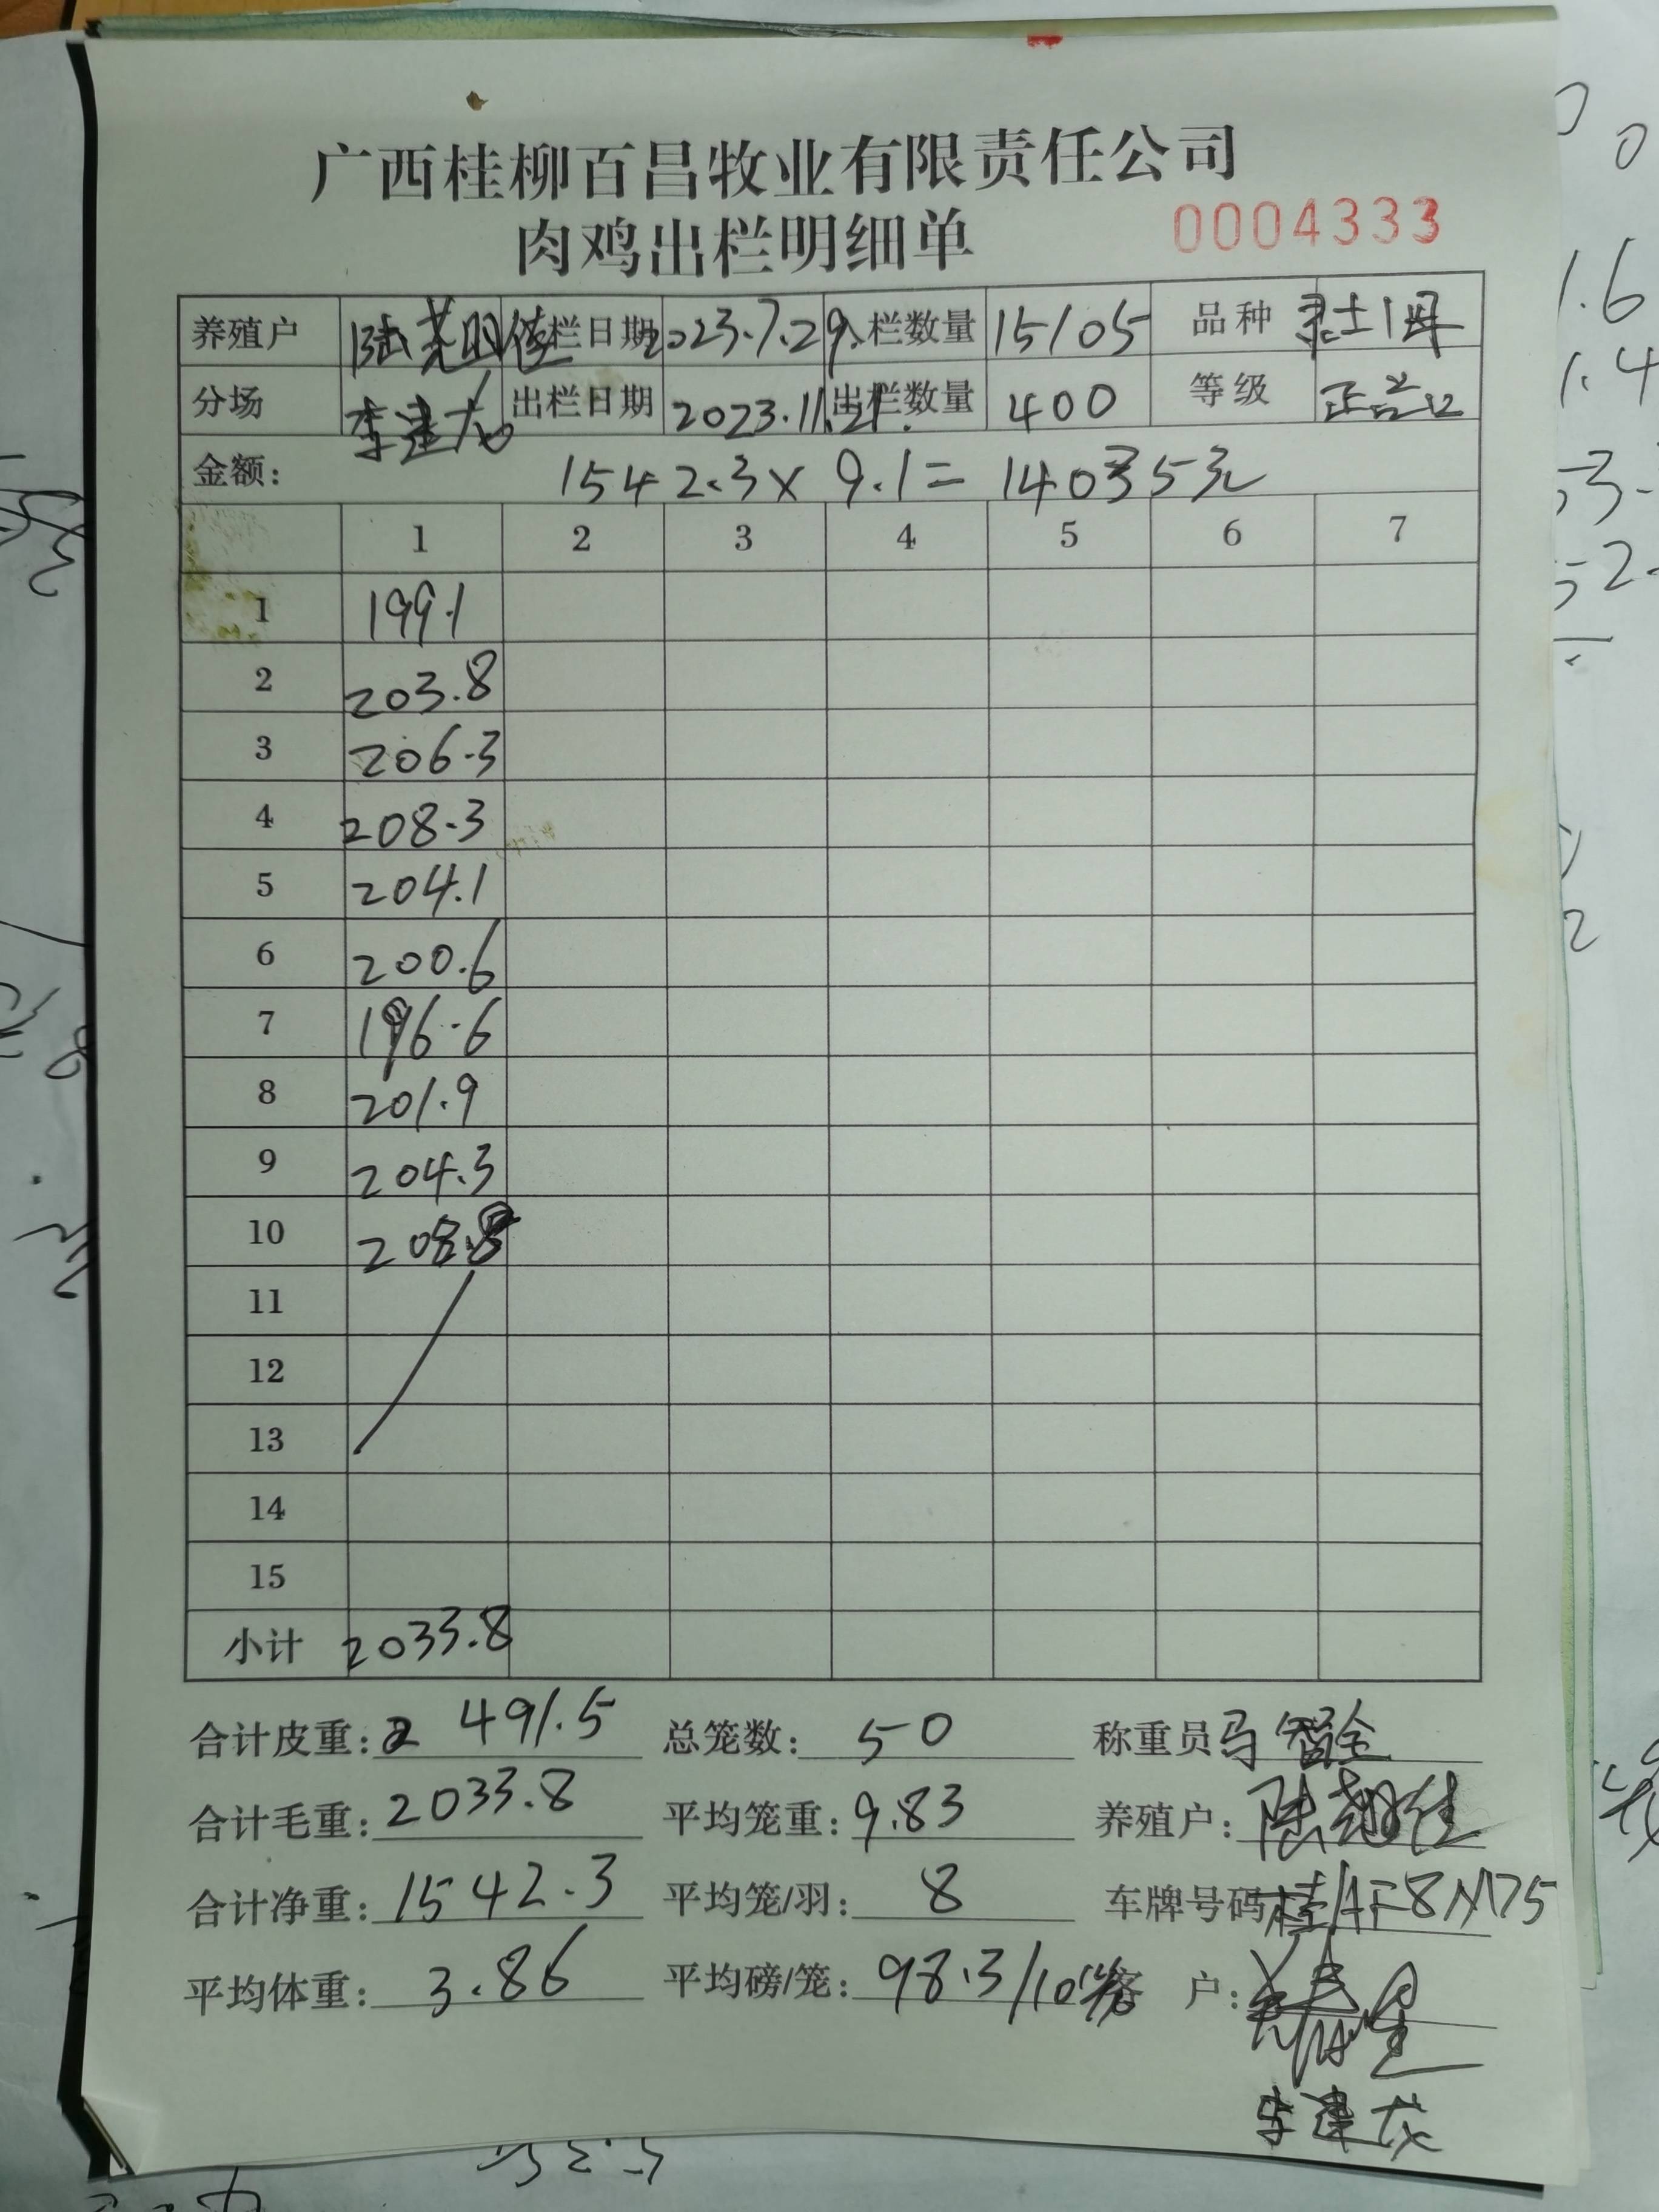 广西桂柳百昌牧业有限责任公司
肉鸡出栏明细单 0004333
养殖户 陆 入栏日期 2023.7.29. 入栏数量 15105 品种
分场 李建龙 出栏日期 2023.11.21. 出栏数量 400 等级 正品
金额: 1542.3×9.1=14035元
1 2 3 4 5 6 7
1 199.1
2 203.8
3 206.3
4 208.3
5 204.1
6 200.6
7 196.6
8 201.9
9 204.3
10 208.8
11
12
13
14
15
小计 2033.8
合计皮重: 491.5 总笼数: 50 称重员 马
合计毛重: 2033.8 平均笼重: 9.83 养殖户: 陆
合计净重: 1542.3 平均笼/羽: 8 车牌号码 桂AF8N175
平均体重: 3.86 平均磅/笼: 98.3/10 客 户:
李建龙